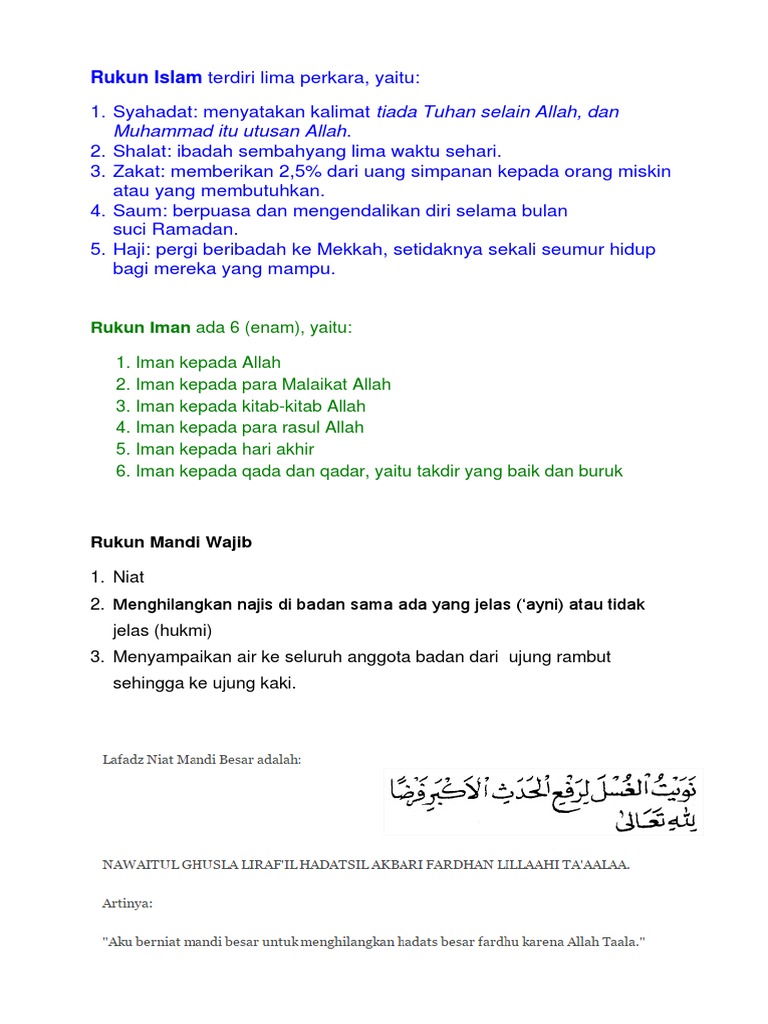 Rukun Islam terdiri lima perkara, yaitu:
1. Syahadat: menyatakan kalimat tiada Tuhan selain Allah, dan
Muhammad itu utusan Allah.
2. Shalat: ibadah sembahyang lima waktu sehari.
3. Zakat: memberikan 2,5% dari uang simpanan kepada orang miskin
atau yang membutuhkan.
4. Saum: berpuasa dan mengendalikan diri selama bulan
suci Ramadan.
5. Haji: pergi beribadah ke Mekkah, setidaknya sekali seumur hidup
bagi mereka yang mampu.
Rukun Iman ada 6 (enam), yaitu:
1. Iman kepada Allah
2. Iman kepada para Malaikat Allah
3. Iman kepada kitab-kitab Allah
4. Iman kepada para rasul Allah
5. Iman kepada hari akhir
6. Iman kepada qada dan qadar, yaitu takdir yang baik dan buruk
Rukun Mandi Wajib
1. Niat
2. Menghilangkan najis di badan sama ada yang jelas (‘ayni) atau tidak
jelas (hukmi)
3. Menyampaikan air ke seluruh anggota badan dari ujung rambut
sehingga ke ujung kaki.
Lafadz Niat Mandi Besar adalah:
نَوَيْتُ الْغُسْلَ لِرَفْعِ الْحَدَثِ الْاَكْبَرِ فَرْضًا
لِلّٰهِ تَعَالَىٰ
NAWAITUL GHUSLA LIRAF'IL HADATSIL AKBARI FARDHAN LILLAAHI TA'AALAA.
Artinya:
"Aku berniat mandi besar untuk menghilangkan hadats besar fardhu karena Allah Taala."